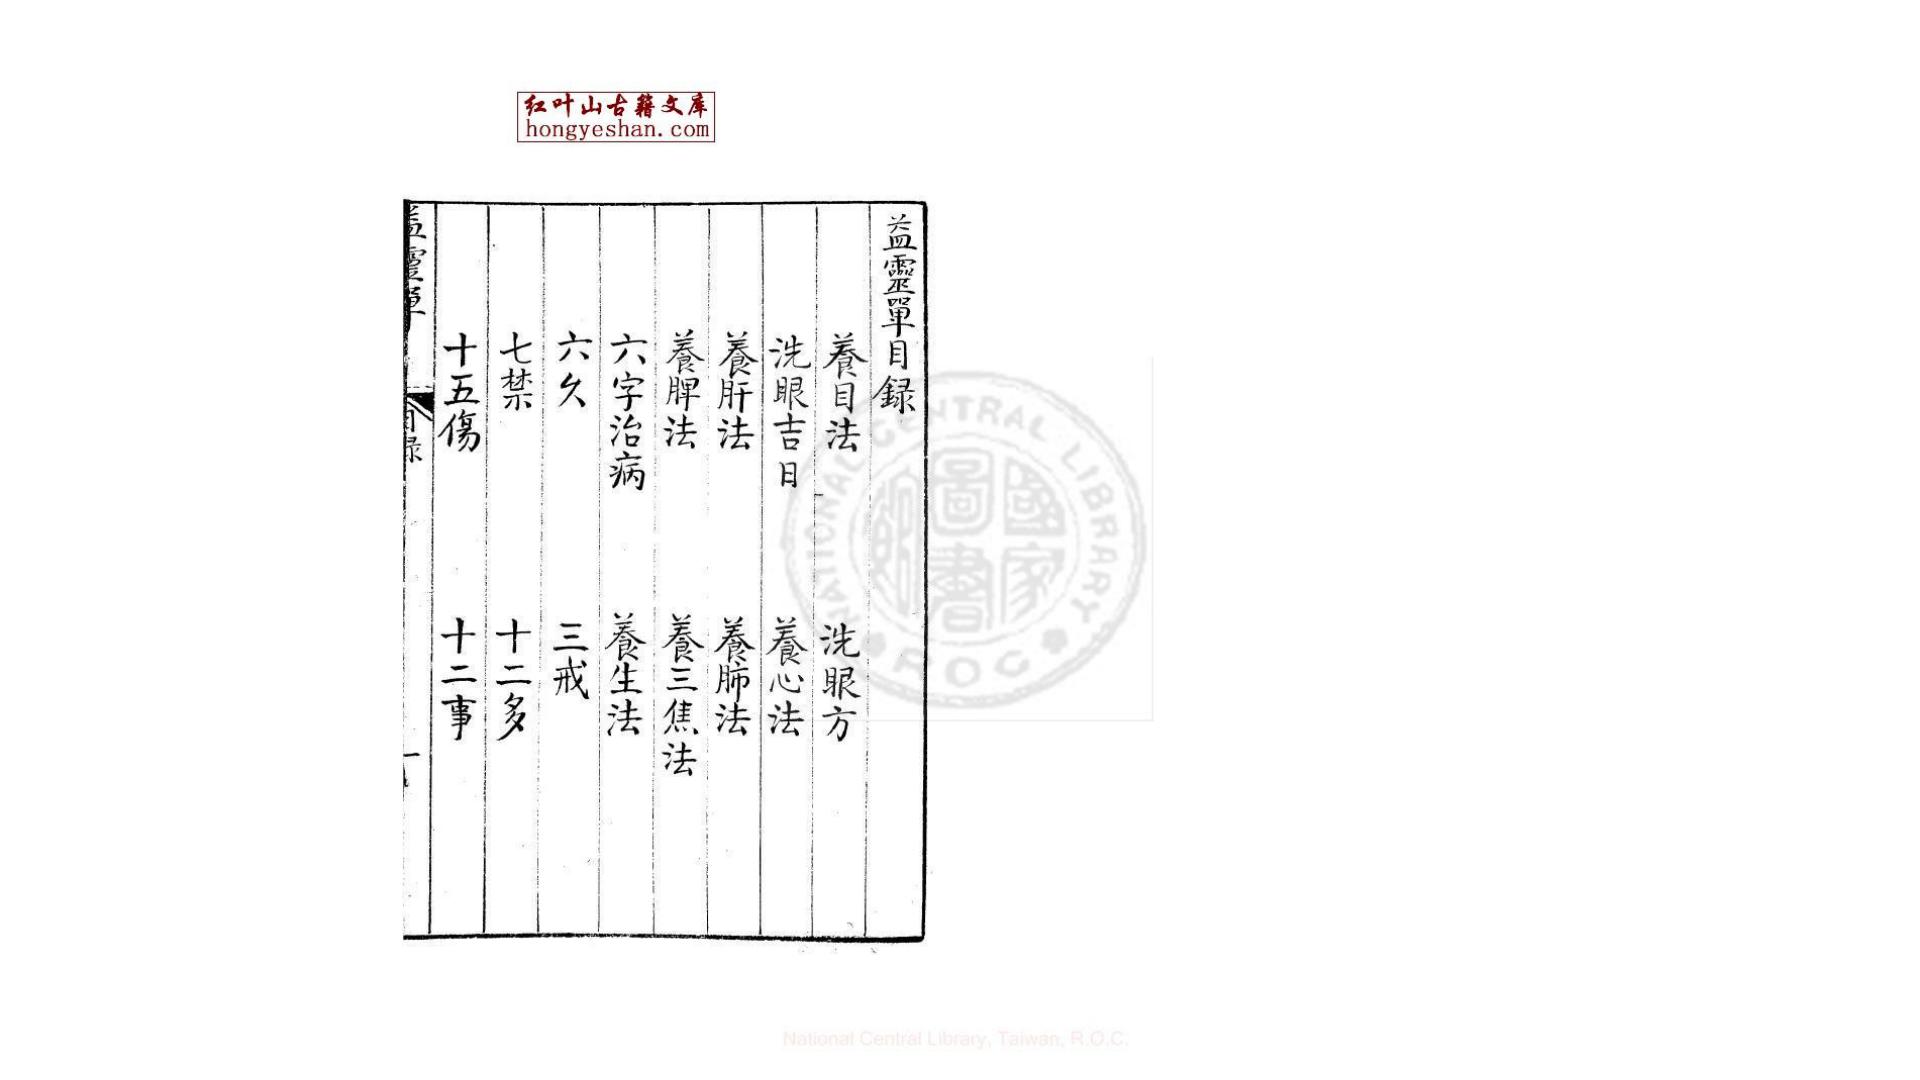 红叶山古籍文库
hongyeshan.com
益靈單目録
養目法
洗眼方
洗眼吉日
養心法
養肝法
養肺法
養脾法
養三焦法
六字治病
養生法
六久
三戒
七禁
十二多
十五傷
十二事
益靈單
目録
一
NATIONAL CENTRAL LIBRARY
ROC
國家圖書館
National Central Library, Taiwan, R.O.C.